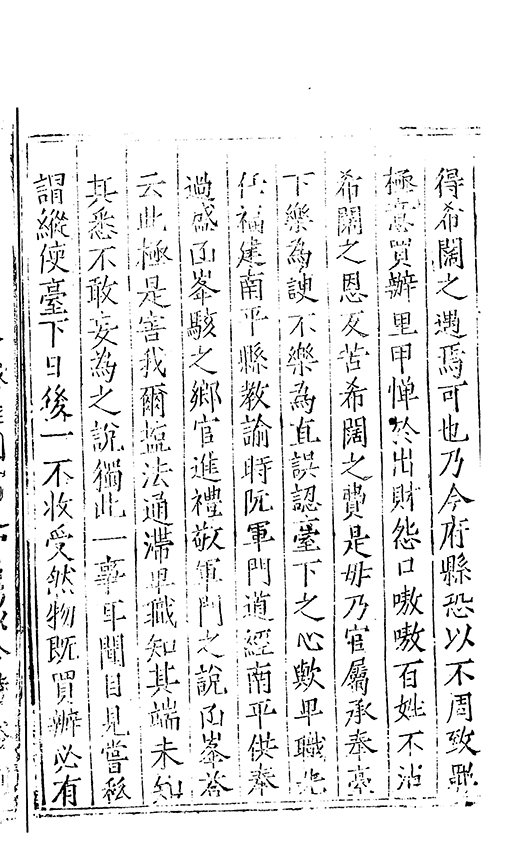 得希闊之遇焉可也乃今府縣恐以不周致罪
極意買辦里甲憚於出財怨口嗷嗷百姓不沾
希闊之恩反苦希闊之費是毋乃官屬承奉臺
下樂為諛不樂為直誤認臺下之心歟卑職先
任福建南平縣教諭時阮軍門道經南平供奉
過盛函峯駭之鄉官進禮敬軍門之說函峯答
云此極是害我爾鹽法通滯卑職知其端未知
其悉不敢妄為之說獨此一事耳聞目見嘗私
謂縱使臺下日後一不收受然物既買辦必有